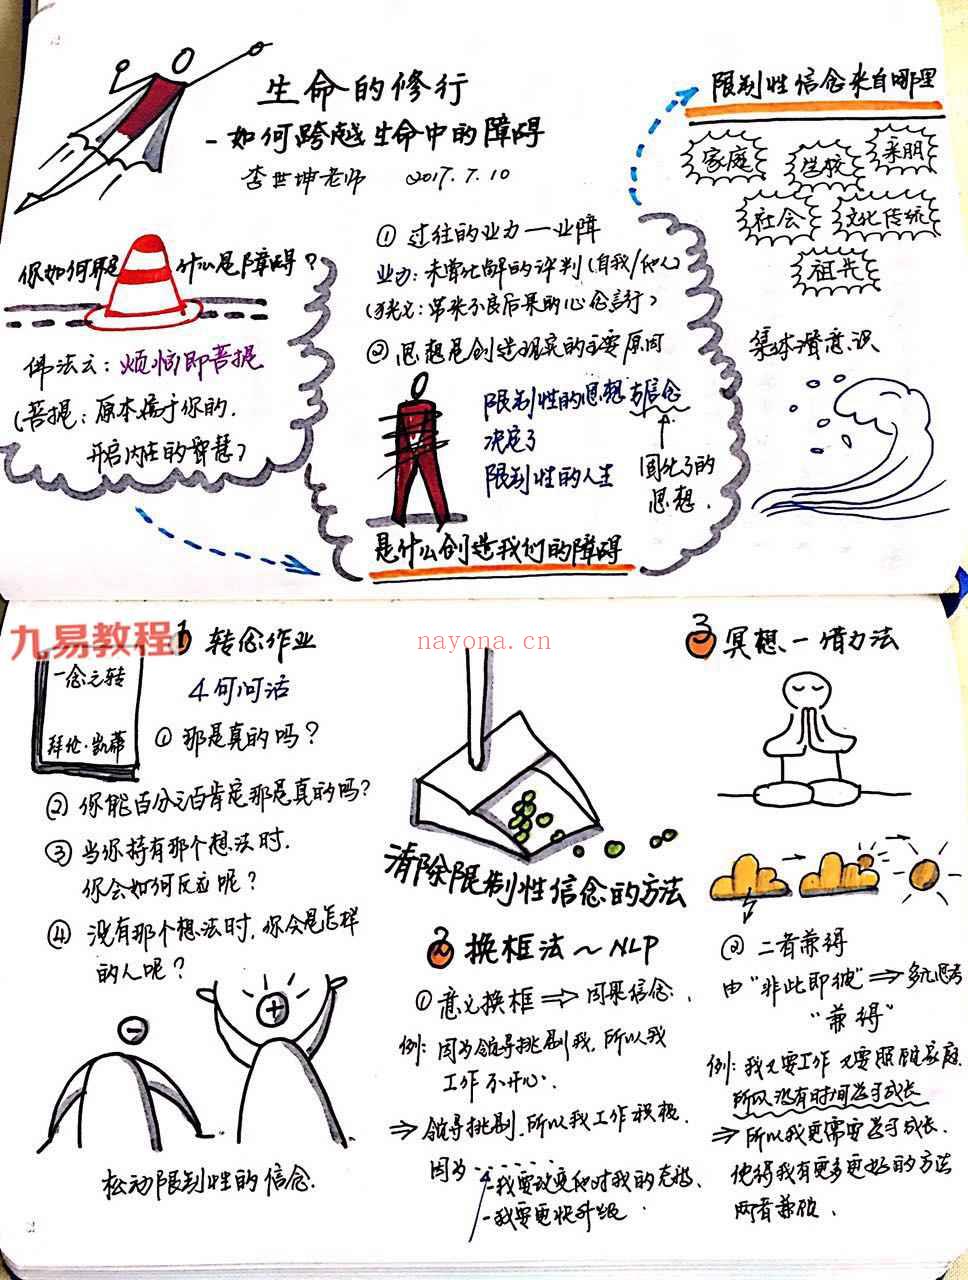 生命的修行
-如何跨越生命中的障碍
李世坤老师 2017.7.10
你如何界定 什么是障碍?
佛法云:烦恼即菩提
(菩提:原本属于你的.
开启内在的智慧)
① 过往的业力—业障
业力:未常化解的评判(自我/他人)
带来不良后果的心念言行)
② 思想是创造现实的主要原因
限制性的思想与信念
决定了
限制性的人生
固化了的
思想.
是什么创造我们的障碍
限制性信念来自哪里
家庭
学校
亲朋
社会
文化传统
祖先
集体潜意识
九易教程
nayona.cn
1 转念作业
一念之转
拜伦·凯蒂
4句问话
① 那是真的吗?
② 你能百分之百肯定那是真的吗?
③ 当你持有那个想法时.
你会如何反应呢?
④ 没有那个想法时,你会是怎样
的人呢?
松动限制性的信念.
清除限制性信念的方法
2 换框法~NLP
① 意义换框⇒因果信念:
例:因为领导挑剔我,所以我
工作不开心.
⇒领导挑剔,所以我工作积极.
因为------
-我要改变他对我的看法
-我要更快升级.
3 冥想—借力法
② 二者兼得
由"非此即彼"⇒多元思考
"兼得"
例:我又要工作 又要照顾家庭
所以没有时间学习成长
⇒所以我更需要学习成长.
使得我有更多更好的方法
两者兼顾.